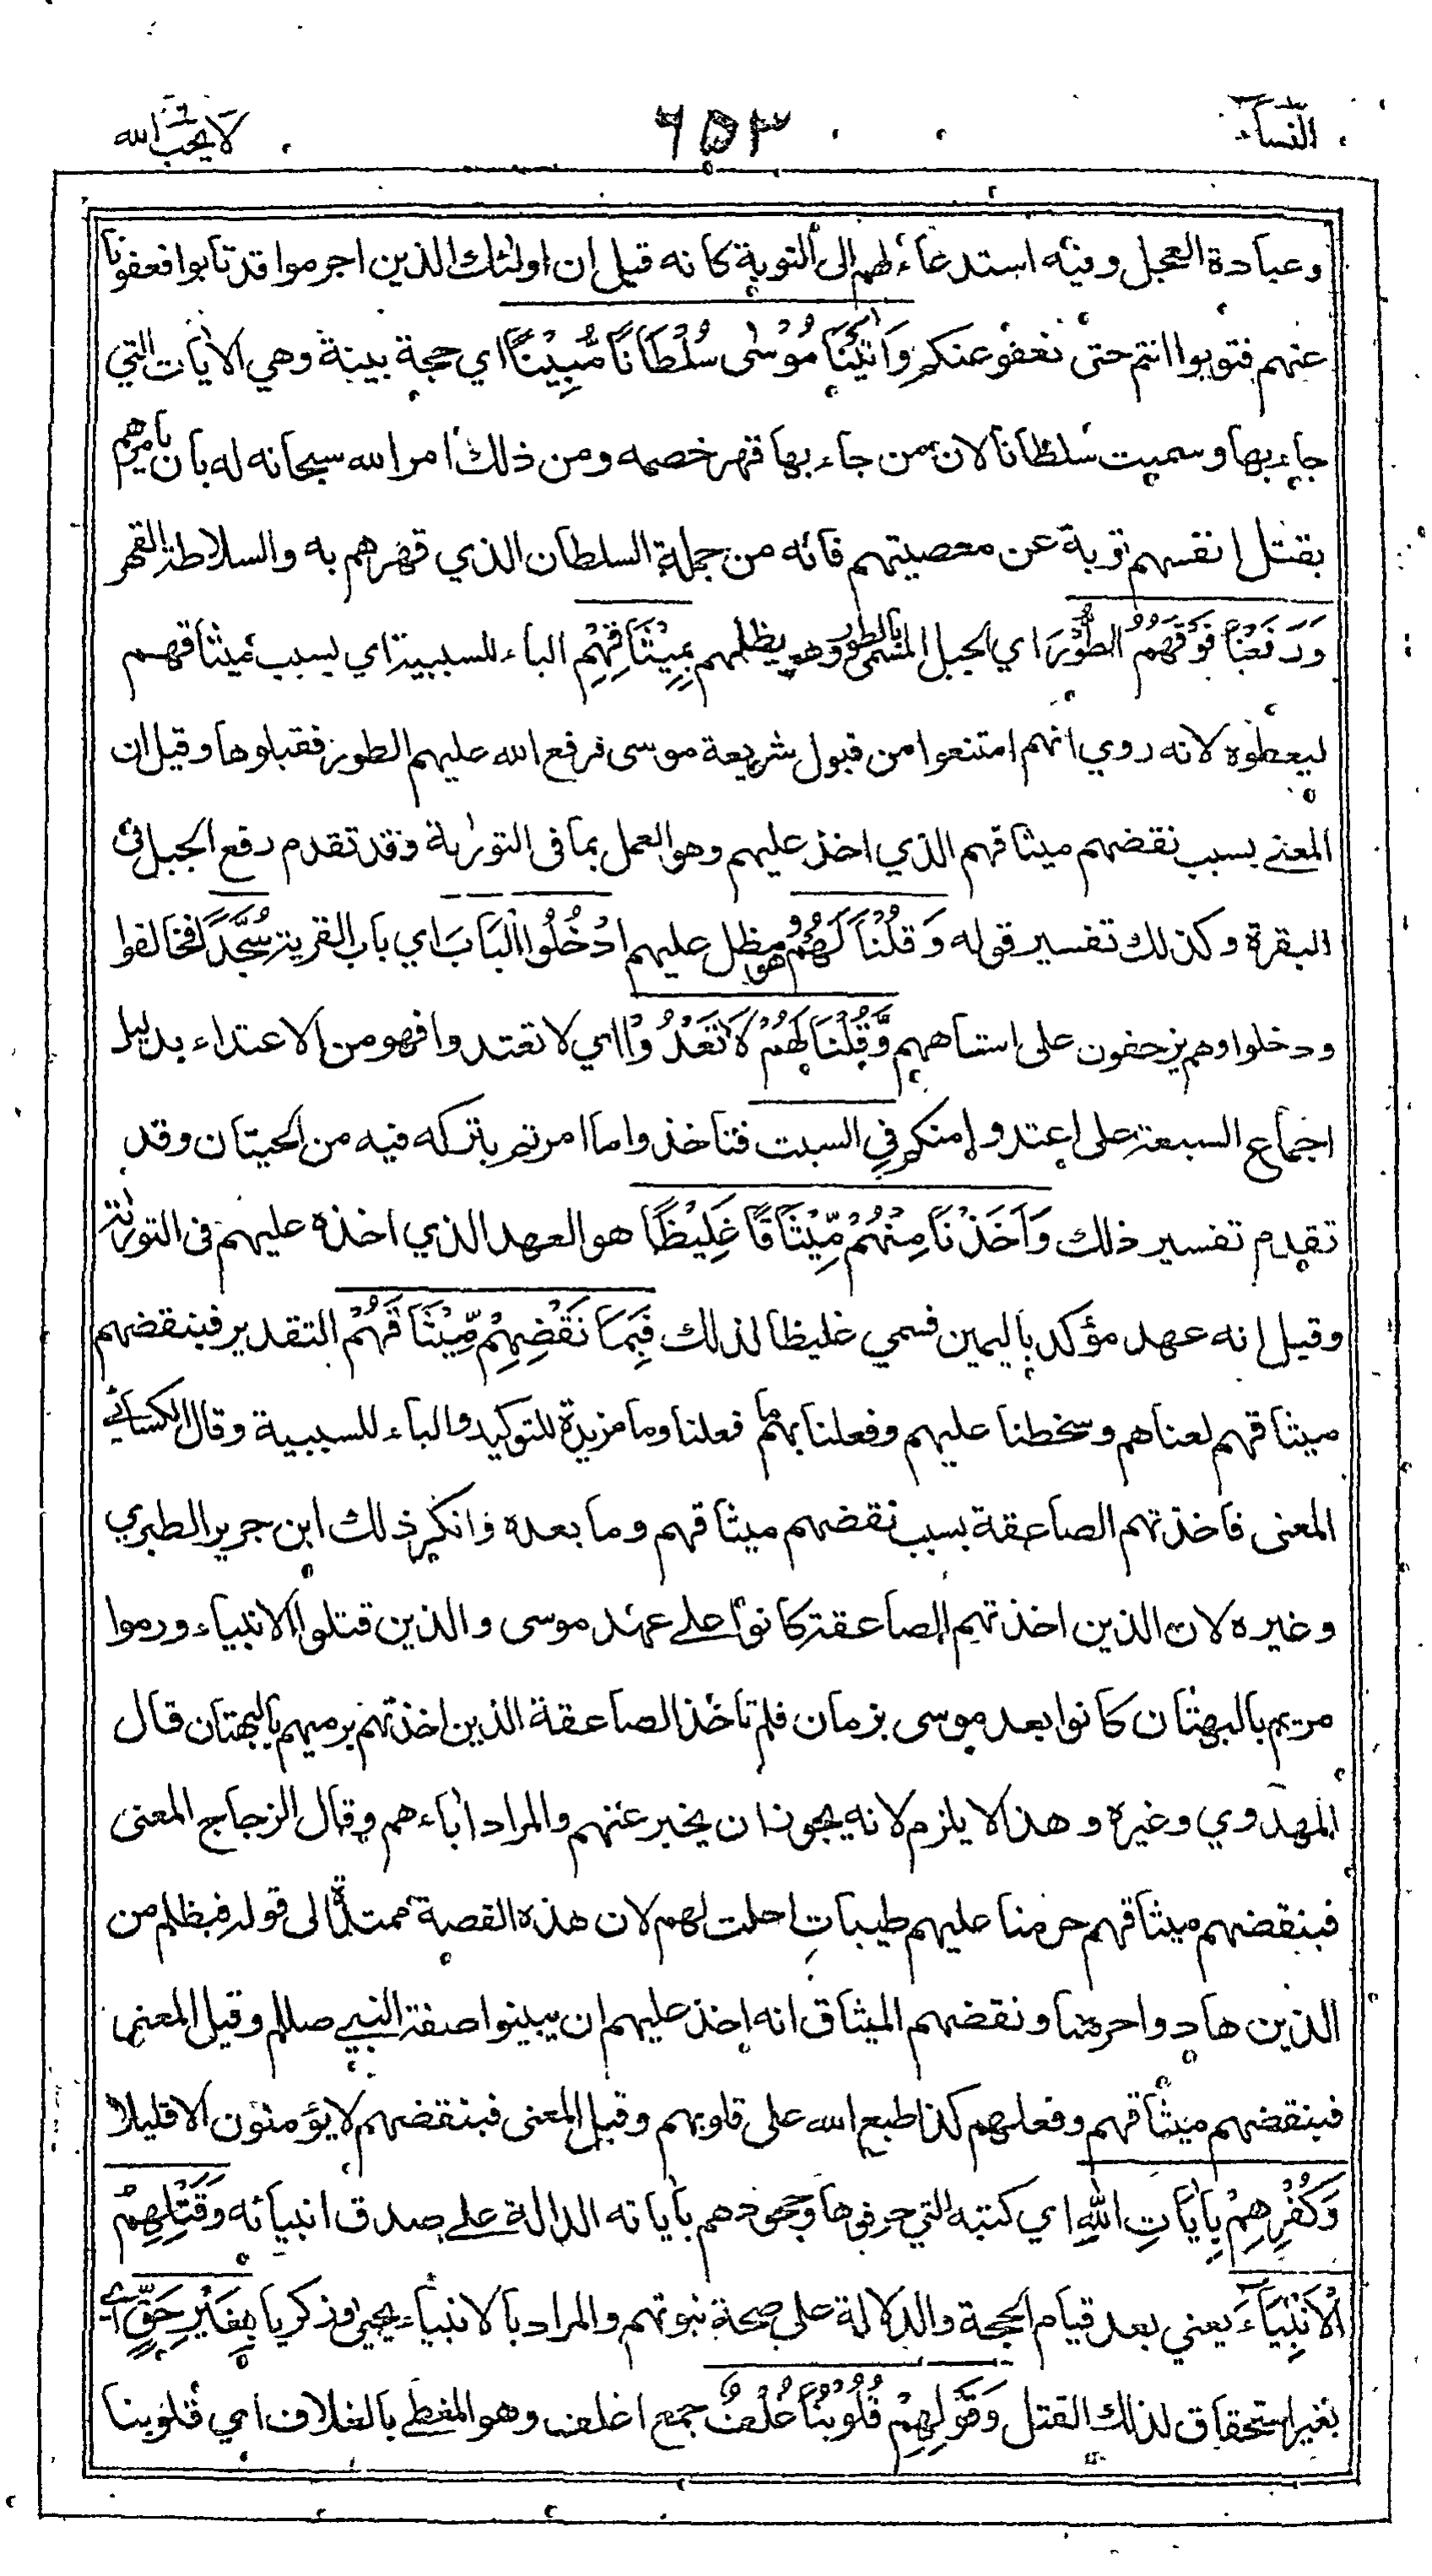 النسآء
٦٥٣
لا يحب الله
وعبادة العجل وفيه استدعاء لهم الى التوبة كانه قيل ان اولئك الذين اجرموا قد تابوا فعفونا
عنهم فتوبوا انتم حتى نعفو عنكم وَاٰتَيْنَا مُوْسٰى سُلْطَانًا مُّبِيْنًا اي حجة بينة وهي الاٰيات التي
جاء بها وسميت سلطانا لان من جاء بها قهر خصمه ومن ذلك امر الله سبحانه له بان يامرهم
بقتل انفسهم توبة عن معصيتهم فانه من جملة السلطان الذي قهرهم به والسلاطة القهر
وَرَفَعْنَا فَوْقَهُمُ الطُّوْرَ اي الجبل المسمى بالطور وهو يظلهم بِمِيْثَاقِهِمْ الباء للسببية اي بسبب ميثاقهم
ليعطوه لانه روي انهم امتنعوا من قبول شريعة موسى فرفع الله عليهم الطور فقبلوها وقيل ان
المعنے بسبب نقضهم ميثاقهم الذي اخذ عليهم وهو العمل بما فى التورٰىة وقد تقدم رفع الجبل فى
البقرة وكذلك تفسير قوله وَقُلْنَا لَهُمُ وهو مظل عليهم ادْخُلُوا الْبَابَ اي باب القرية سُجَّدًا فخالفوا
ودخلوا وهم يزحفون على استاههم وَّقُلْنَا لَهُمْ لَا تَعْدُوْا اي لا تعتدوا فهو من الاعتداء بدليل
اجماع السبعة على اعتدوا منكم في السبت فتاخذوا ما امرتم بتركه فيه من الحيتان وقد
تقدم تفسير ذلك وَاَخَذْنَا مِنْهُمْ مِّيْثَاقًا غَلِيْظًا هو العهد الذي اخذه عليهم فى التورٰىة
وقيل انه عهد مؤكد باليمين فسمي غليظا لذلك فَبِمَا نَقْضِهِمْ مِّيْثَاقَهُمْ التقدير فبنقضهم
ميثاقهم لعناهم وسخطنا عليهم وفعلنا بهم ما فعلنا وما مزيدة للتوكيد والباء للسببية وقال الكسائے
المعنى فاخذتهم الصاعقة بسبب نقضهم ميثاقهم وما بعده وانكر ذلك ابن جرير الطبري
وغيره لان الذين اخذتهم الصاعقة كانوا علے عهد موسى والذين قتلوا الانبياء ورموا
مريم بالبهتان كانوا بعد موسى بزمان فلم تاخذ الصاعقة الذين اخذتهم برميهم بالبهتان قال
المهدوي وغيره وهذا لا يلزم لانه يجوز ان يخبر عنهم والمراد اٰباءهم وقال الزجاج المعنى
فبنقضهم ميثاقهم حرمنا عليهم طيبات احلت لهم لان هذه القصة ممتدة الى قوله فبظلم من
الذين هادوا حرمنا ونقضهم الميثاق انه اخذ عليهم ان يبينوا صفة النبيے صللم وقيل المعنى
فبنقضهم ميثاقهم وفعلهم كذا طبع الله على قلوبهم وقيل المعنى فبنقضهم لا يؤمنون الا قليلا
وَكُفْرِهِمْ بِاٰيَاتِ اللّٰهِ اي كتبه التي حرفوها وجحودهم باٰياته الدالة علے صدق انبيائه وَقَتْلِهِمُ
الْاَنْبِيَآءَ يعني بعد قيام الحجة والدلالة على صحة نبوتهم والمراد بالانبياء يحيى وزكريا بِغَيْرِ حَقٍّ اے
بغير استحقاق لذلك القتل وَقَوْلِهِمْ قُلُوْبُنَا غُلْفٌ جمع اغلف وهو المغطے بالغلاف اي قلوبنا